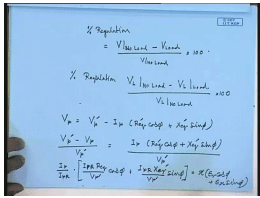 % Regulation
= V|No Load - VLoad / V|No Load × 100.
% Regulation VL|No Load - VL|Load / VL|No Load × 100
Vp = Vp' - Ip (Req cosφ + Xeq sinφ)
Vp' - Vp / Vp' = Ip (Req cosφ + Xeq sinφ) / Vp'
Ip / IpR · [ IpR Req / Vp' cosφ + IpR Xeq / Vp' sinφ ] = x (Er cosφ
+ Ex sinφ)